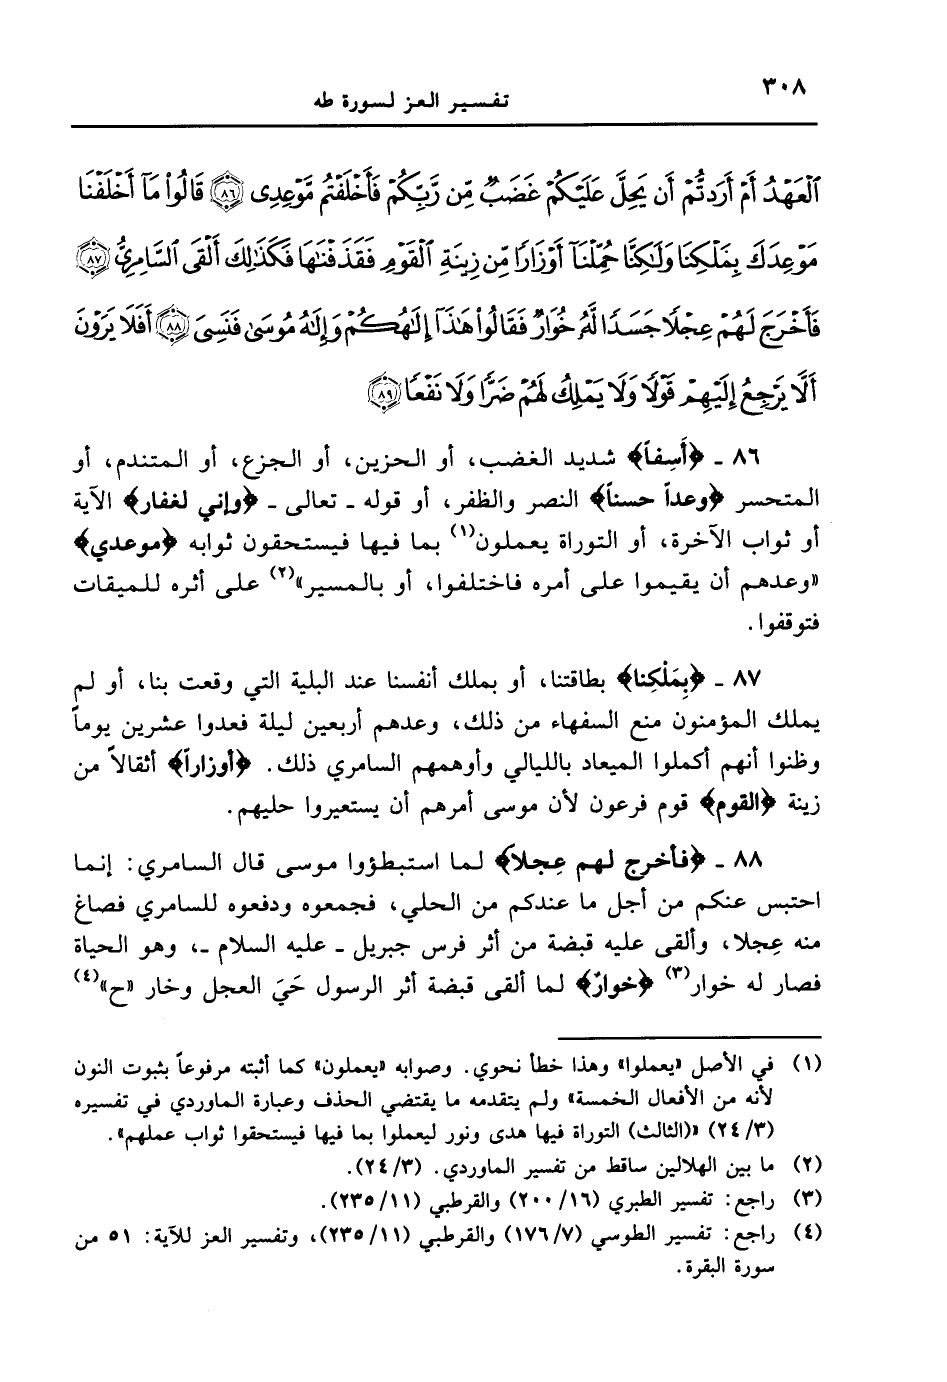 ٣٠٨
تفسير العز لسورة طه
ٱلْعَهْدُ أَمْ أَرَدتُّمْ أَن يَحِلَّ عَلَيْكُمْ غَضَبٌ مِّن رَّبِّكُمْ فَأَخْلَفْتُم مَّوْعِدِى ﴿٨٦﴾ قَالُوا۟ مَآ أَخْلَفْنَا
مَوْعِدَكَ بِمَلْكِنَا وَلَٰكِنَّا حُمِّلْنَآ أَوْزَارًا مِّن زِينَةِ ٱلْقَوْمِ فَقَذَفْنَٰهَا فَكَذَٰلِكَ أَلْقَى ٱلسَّامِرِىُّ ﴿٨٧﴾
فَأَخْرَجَ لَهُمْ عِجْلًا جَسَدًا لَّهُۥ خُوَارٌ فَقَالُوا۟ هَٰذَآ إِلَٰهُكُمْ وَإِلَٰهُ مُوسَىٰ فَنَسِىَ ﴿٨٨﴾ أَفَلَا يَرَوْنَ
أَلَّا يَرْجِعُ إِلَيْهِمْ قَوْلًا وَلَا يَمْلِكُ لَهُمْ ضَرًّا وَلَا نَفْعًا ﴿٨٩﴾
٨٦ ـ ﴿أَسِفاً﴾ شديد الغضب، أو الحزين، أو الجزع، أو المتندم، أو
المتحسر ﴿وعداً حسناً﴾ النصر والظفر، أو قوله ـ تعالى ـ ﴿وإني لغفار﴾ الآية
أو ثواب الآخرة، أو التوراة يعملون(١) بما فيها فيستحقون ثوابه ﴿موعدي﴾
«وعدهم أن يقيموا على أمره فاختلفوا، أو بالمسير»(٢) على أثره للميقات
فتوقفوا.
٨٧ ـ ﴿بِمَلْكِنا﴾ بطاقتنا، أو بملك أنفسنا عند البلية التي وقعت بنا، أو لم
يملك المؤمنون منع السفهاء من ذلك، وعدهم أربعين ليلة فعدوا عشرين يوماً
وظنوا أنهم أكملوا الميعاد بالليالي وأوهمهم السامري ذلك. ﴿أوزاراً﴾ أثقالاً من
زينة ﴿القوم﴾ قوم فرعون لأن موسى أمرهم أن يستعيروا حليهم.
٨٨ ـ ﴿فأخرج لهم عِجلاً﴾ لما استبطؤوا موسى قال السامري: إنما
احتبس عنكم من أجل ما عندكم من الحلي، فجمعوه ودفعوه للسامري فصاغ
منه عِجلا، وألقى عليه قبضة من أثر فرس جبريل ـ عليه السلام ـ، وهو الحياة
فصار له خوار(٣) ﴿خوارٌ﴾ لما ألقى قبضة أثر الرسول حَيَ العجل وخار «ح»(٤)
(١) في الأصل «يعملوا» وهذا خطأ نحوي. وصوابه «يعملون» كما أثبته مرفوعاً بثبوت النون
لأنه من الأفعال الخمسة» ولم يتقدمه ما يقتضي الحذف وعبارة الماوردي في تفسيره
(٢٤/٣) «(الثالث) التوراة فيها هدى ونور ليعملوا بما فيها فيستحقوا ثواب عملهم».
(٢) ما بين الهلالين ساقط من تفسير الماوردي. (٢٤/٣).
(٣) راجع: تفسير الطبري (٢٠٠/١٦) والقرطبي (٢٣٥/١١).
(٤) راجع: تفسير الطوسي (١٧٦/٧) والقرطبي (٢٣٥/١١)، وتفسير العز للآية: ٥١ من
سورة البقرة.